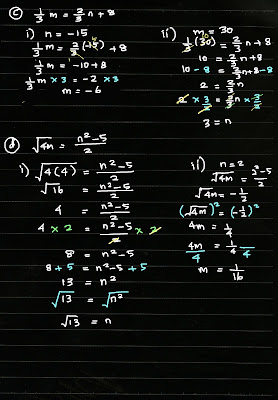 c) 1/3 m = 2/3 n + 8
i) n = -15
1/3 m = 2/3 (-15) + 8
1/3 m = -10 + 8
1/3 m × 3 = -2 × 3
m = -6
ii) m = 30
1/3 (30) = 2/3 n + 8
10 = 2/3 n + 8
10 - 8 = 2/3 n + 8 - 8
2 = 2/3 n
2 × 3/2 = 2/3 n × 3/2
3 = n
d) √4m = n² - 5 / 2
i) √4(4) = n² - 5 / 2
√16 = n² - 5 / 2
4 = n² - 5 / 2
4 × 2 = n² - 5 / 2 × 2
8 = n² - 5
8 + 5 = n² - 5 + 5
13 = n²
√13 = √n²
√13 = n
ii) n = 2
√4m = 2² - 5 / 2
√4m = - 1/2
(√4m)² = (- 1/2)²
4m = 1/4
4m/4 = 1/4 / 4
m = 1/16